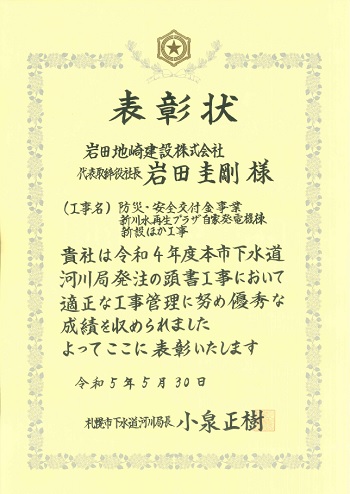 表彰状
岩田地崎建設株式会社
代表取締役社長 岩田圭剛 様
（工事名） 防災・安全交付金事業
新川水再生プラザ自家発電機棟
新設ほか工事
貴社は令和4年度本市下水道
河川局発注の頭書工事において
適正な工事管理に努め優秀な
成績を収められました
よってここに表彰いたします
令和5年5月30日
札幌市下水道河川局長 小泉正樹